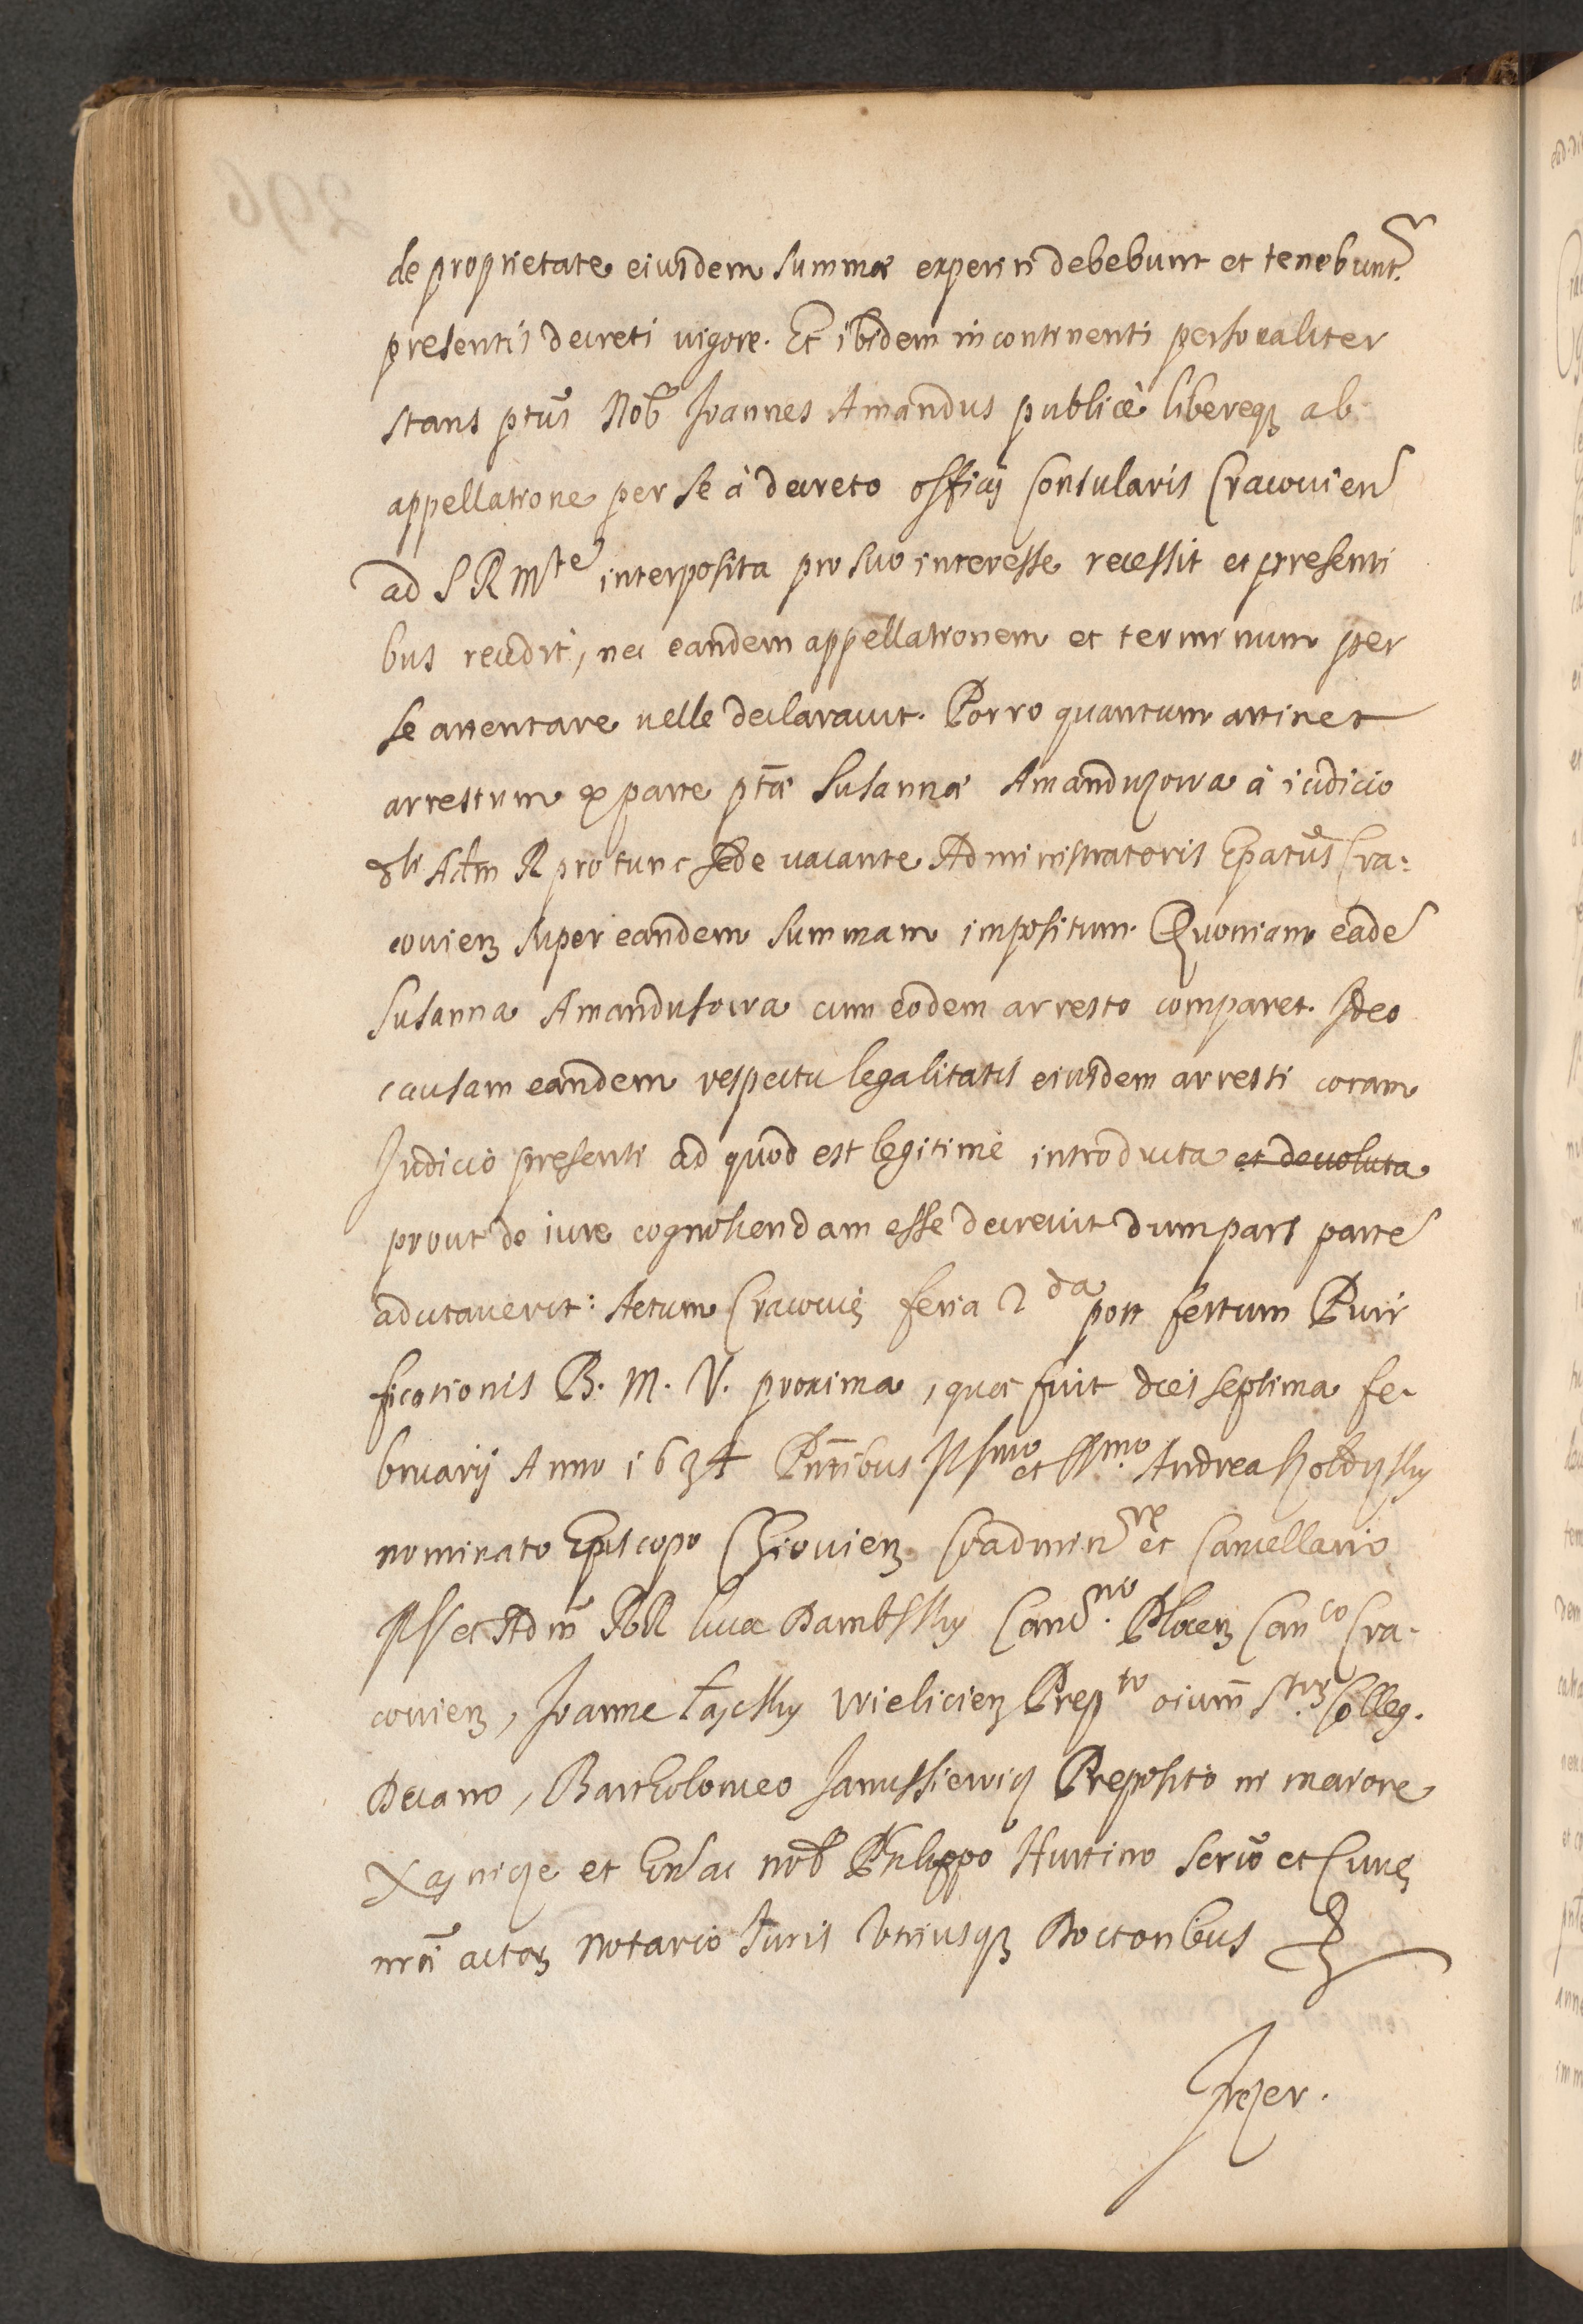 de proprietate eiusdem summæ experiri debebunt et tenebunt.r
presentis decreti uigore. Et ibidem incontinenti personaliter
stans ptus Nob Joannes Amandus publicè libereqʒ ab
appellatione per se à decreto officij Consularis Cracouien
ad S R Mte interposita pro suo interesse recessit et presenti
bus recedit, nec eandem appellationem et terminum per
se attentare uelle declarauit. Porro quantum attinet
arrestum ex parte ptæ Susannæ Amanduzowa à iudicio
Adm R pro tunc Sede uacante Administratoris Epatus Cra:
couienʒ super eandem summam impositum. Quoniam eade
Susanna Amandusowa cum eodem arresto comparet. Ideo
causam eandem respectu legalitatis eiusdem arresti coram
Judicio presenti ad quod est legitimè introducta et deuoluta
prout de iure cognoscendam esse decreuit dum pars parte
adcitauerit: Actum Cracouię feria 2da post festum Puri
ficationis B. M. V. proxima, quæ fuit dies septima fe-
bruarij Anno 1634 Pntibus Illmo et Rmo Andrea Szołdrsky
nominato Episcopo Chiouienʒ Coadminre et Cancellario
Ill et Adm RR Luca Dambsky Canno. Plocenʒ Canco Cra-
couienʒ, Joanne Wielicienʒ Prepto oium Storʒ Colleg.
Decano, Bartholomeo Janussiewicz Preposito in maiore
Xąznicze et Gnsac nob Philippo Huttino Scriö et Curię
nrăi actorʒ Notario Juris Vtriusqʒ Doctoribus
Inter.